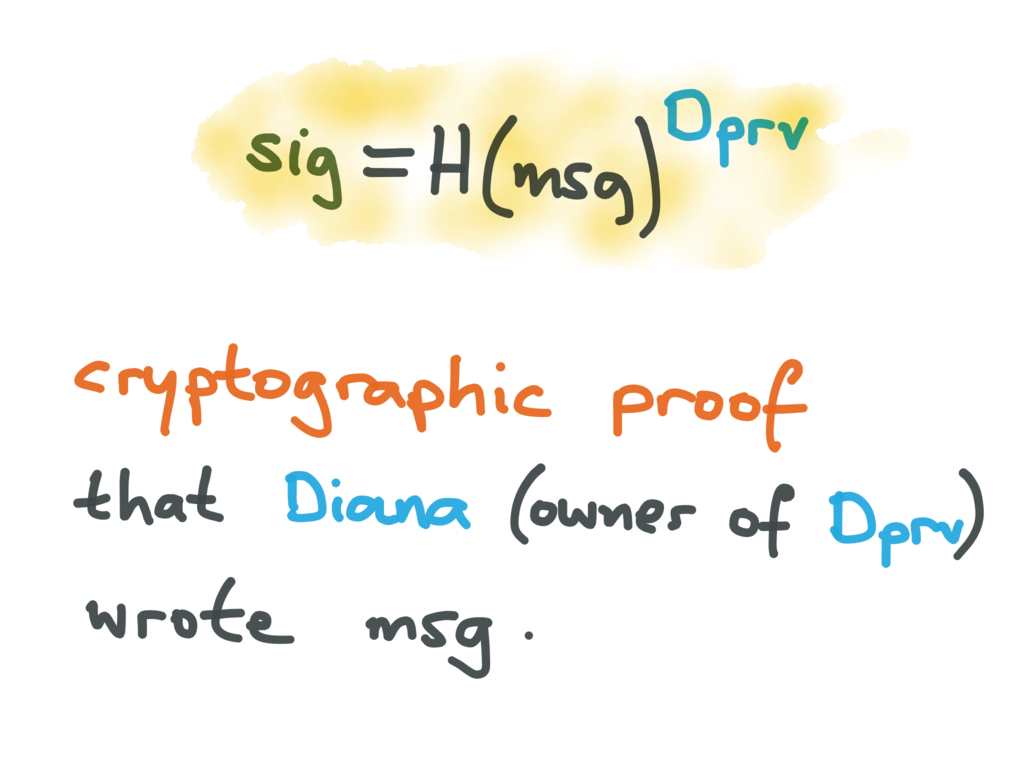 sig = H(msg)^Dprv
cryptographic proof
that Diana (owner of Dprv)
wrote msg.